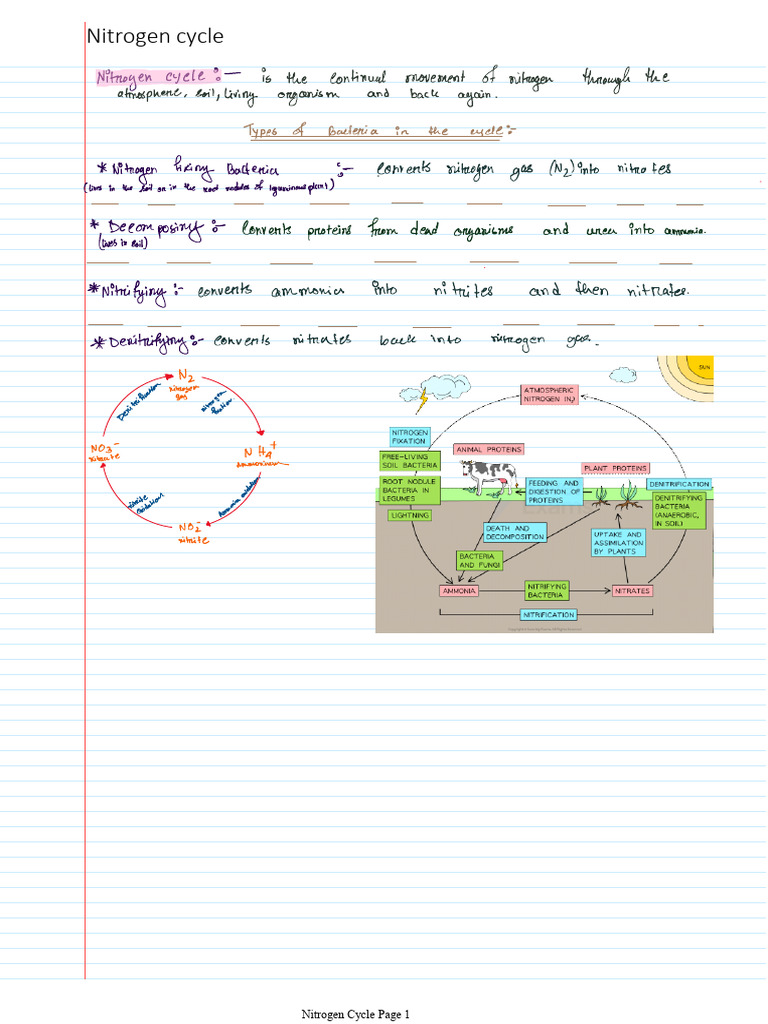 Nitrogen cycle
Nitrogen cycle :- is the continual movement of nitrogen through the
atmosphere, soil, living organism and back again.
Types of Bacteria in the cycle:-
* Nitrogen fixing Bacteria :- converts nitrogen gas (N2) into nitrates
(lives in the soil or in the root nodules of leguminous plant)
* Decomposing :- Converts proteins from dead organisms and urea into ammonia.
(lives in soil)
* Nitrifying :- converts ammonia into nitrites and then nitrates.
* Denitrifying :- converts nitrates back into nitrogen gas.
N2
nitrogen
gas
Denitrification
nitrogen
fixation
NO3-
nitrate
NH4+
Ammonium
nitrite
oxidation
Ammonia oxidation
NO2-
nitrite
SUN
ATMOSPHERIC
NITROGEN (N2)
NITROGEN
FIXATION
FREE-LIVING
SOIL BACTERIA
ROOT NODULE
BACTERIA IN
LEGUMES
LIGHTNING
ANIMAL PROTEINS
PLANT PROTEINS
FEEDING AND
DIGESTION OF
PROTEINS
DENITRIFICATION
DENITRIFYING
BACTERIA
(ANAEROBIC,
IN SOIL)
DEATH AND
DECOMPOSITION
UPTAKE AND
ASSIMILATION
BY PLANTS
BACTERIA
AND FUNGI
AMMONIA
NITRIFYING
BACTERIA
NITRATES
NITRIFICATION
Nitrogen Cycle Page 1